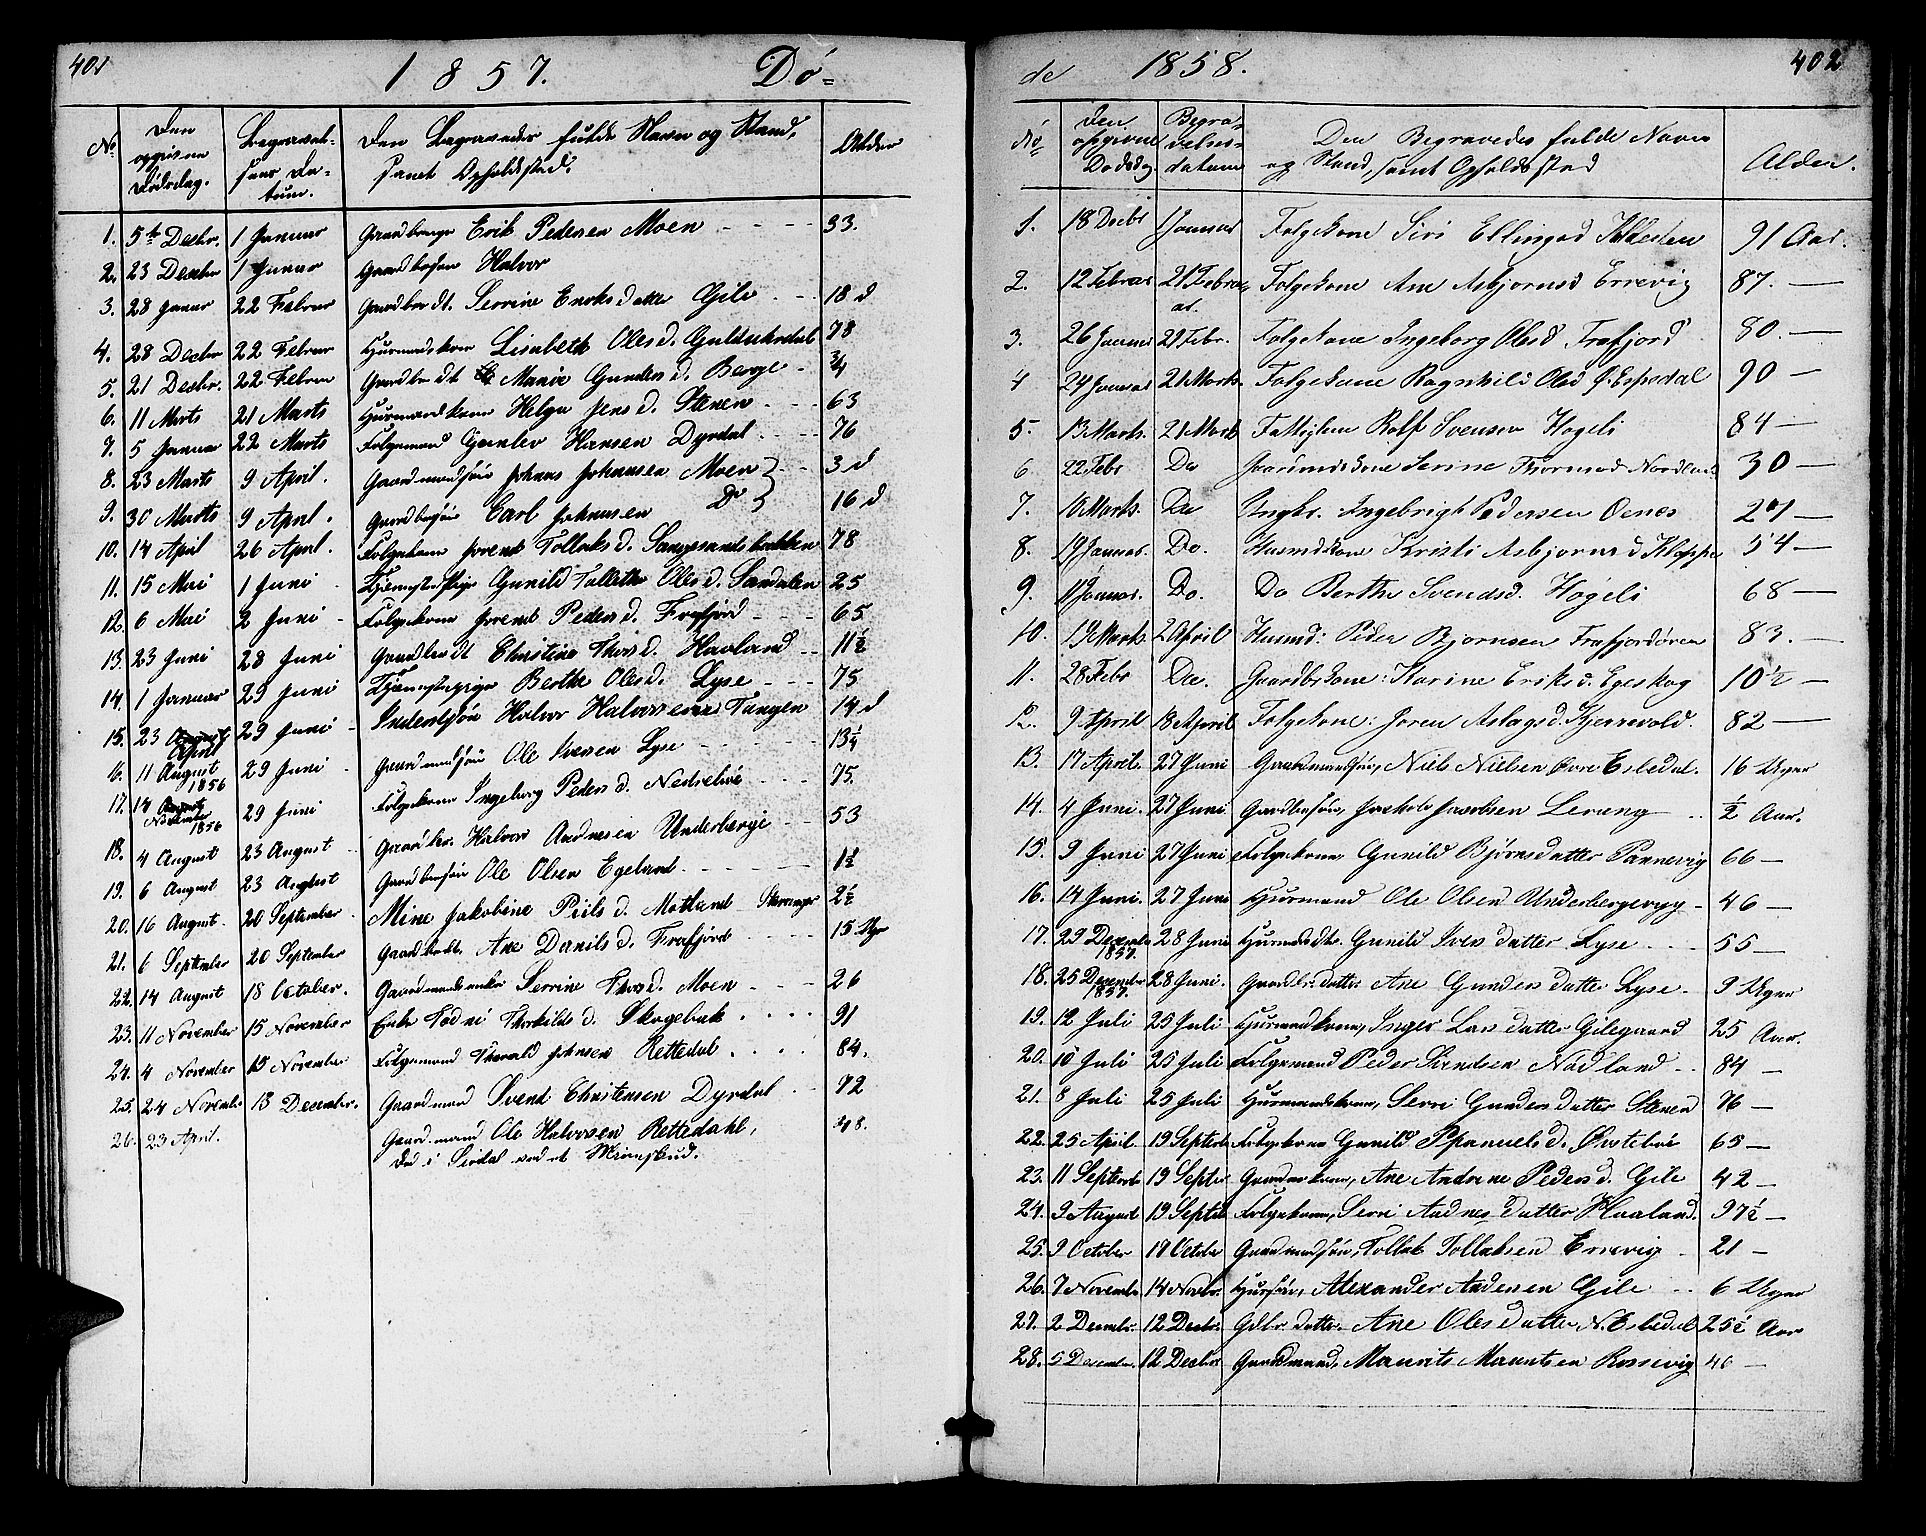 401
1857. Dö-
No. Den opgivne Dödsdag. Begravel-sens Da-tum. Den Begravedes fulde Navn og Stand, samt Opholdssted. Alder
1. 5te Decbr. 1 Januar Gaardbruger Erik Pedersen Moen 33.
2. 23 Decbr 1 Januar Halvor
3. 28 Januar 22 Februar Gaardbr dt. Serrine Eriksdatter Gilje 18 d
4. 28 Decbr 22 Februar Huusmandskone Lisabeth Olesd. 78
5. 21 Decbr. 22 Februar Gaardbr dt Marie Gundersd. Berge 3/4
6. 11 Marts 21 Marts Huusmandskone Helga Jensd. Stenen 63
7. 5 Januar 22 Marts Folgemand Gunlev Hansen Dyrdal 76
8. 23 Marts 9 April. Gaardmandsön Johnas Johnasen Moen 3 d
9. 30 Marts 9 April. Gaardbrsön Carl Johnasen Do 16 d
10. 14 April 26 April. Folgekone Jorend Tollaksd. Songesandsbakken 78
11. 15 Mai 1 Juni Tjenestepige Gunild Tollette Olesd. Sandalen 25
12. 6 Mai 2 Juni Folgekone Jorend Pedersd. Frafjord 65
13. 23 Juni 28 Juni Gaardbr dt Christine Thorsd. Haaland 11½
14. 1 Januar 29 Juni Tjenestepige Berthe Olesd. Lyse 75
15. 23 April 29 Juni Inderstsön Halvor Halvorsen Tangen 14 d
16. 11 August 1856 29 Juni Gaardmandsön Ole Svensen Lyse 13¼
17. 14 November 1856 29 Juni Folgekone Ingeborg Pedersd. Nedrebö 75.
18. 4 August 23 August Gaardbr. Halvor Aadnesen Underberge 53
19. 6 August 23 August Gaardbrsön Ole Olsen Egeland 1½
20. 16 August 20 September Mine Jakobine Piilsd. Motland Stavanger 2½
21. 6 September 20 September Gaardbrdt. Ane Danielsd. Frafjord 15 Uger
22. 14 August 18 October. Gaardmandsenke Serrine Thorsd. Moen 26
23. 11 November 15 November Enke Thorkildsd. Skogebak 91
24. 4 November 15 November Folgemand Thorvald Johnsen Rettedal 84.
25. 24 November 13 December. Gaardmand Svend Christensen Dyrdal 72
26. 23 April. Gaardmand Ole Halvorsen Rettedahl, 48.
död i Sirdal ved et Skud.
402
de 1858.
No Den opgivne Dödsdag Begra-velses-datum Den Begravedes fulde Navn og Stand, samt Opholdssted Alder.
1. 18 Decbr 1 Januar Folgekone Siri Ellingsd 91 Aar.
2. 12 Februar 21 Februar. Folgekone Ane Asbjörnsd Errevig 87. —
3. 26 Januar 21 Febr. Folgekone Ingeborg Olesd Frafjord 80. —
4 24 Januar 21 Marts. Folgekone Ragnhild Olesd Ö. Espedal 90 —
5. 13 Marts. 21 Marts Rolf Svensen Hogeli 84 —
6. 22 Febr Do Gaarmdskone Serine Thormod Nordland 30 —
7. 10 Marts. Do Ungkr. Ingebrigt Pedersen Oenes 21 —
8. 19 Januar. Do. Husmdskone Kristi Asbjörnsd Kleppe 54 —
9. 11 Januar. Do. Do Berthe Svendsd. Högeli 68 —
10. 13 Marts. 2 April Husmd: Peder Bjornsen Frafjordören 83. —
11. 28 Febr Do. Gaardbkone: Karine Eriksd. Egeskog 10½ —
12. 9 April 18 April Folgekone: Joren Aslagsd. Kjerrvold. 82 —
13. 17 April. 27 Juni Gaardmandsön, Niels Nielsen Övre Esledal. 16 Uger
14. 4 Juni. 27 Juni Gaardbrsön, Jakob Jacobsen Lerang ½ Aar.
15. 9 Juni 27 Juni Folgekone, Gunild Björnsdatter Pannevig 66 —
16. 14 Juni. 27 Juni Huusmand Ole Olsen Underbergerygg 46 —
17. 29 December 1857. 28 Juni Huusmds dtr. Gunild Svensdatter Lyse 55 —
18. 25 December 1857. 28 Juni. Gaardbr. datter Ane Gundersdatter Lyse. 9 Uger
19. 12 Juli 25 Juli Huusmandkone, Inger Larsdatter Gilegaard 25 Aar.
20. 10 Juli 25 Juli Folgemand Peder Svendsen Nodland 84 —
21. 8 Juli 25 Juli Huusmandskone, Serri Gundersdatter Stenen 76 —
22. 25 April 19 Septbr Folgekone Gunild Spanuelsd. Övstebö 65 —
23. 11 Septembr 19 Septbr Gaardmkone, Ane Andrine Pedersd. Gile 42 —
24. 9 August 19 Septbr Folgekone, Serri Aadnesdatter Haaland. 97½ —
25. 9 October 17 October Gaardmandsön, Tollak Tollaksen Errevig 21 —
26. 7 Novembr 14 Novbr. Huussön, Alexander Andersen Gile 6 Uger
27. 2 Decembr. 12 Decbr. Gdbr. datter Ane Olesdatter N. Esledal 25½ Aar
28. 5 December. 12 Decbr Gaardmand, Maurits Mauritsen Rossevig 46 —